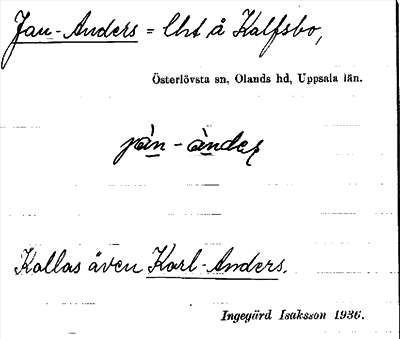 Jan-Anders = Chs å Kalfsbo,
Österlövsta sn, Olands hd, Uppsala län.
jàn - ànder
Kallas även Karl-Anders.
Ingegärd Isaksson 1936.